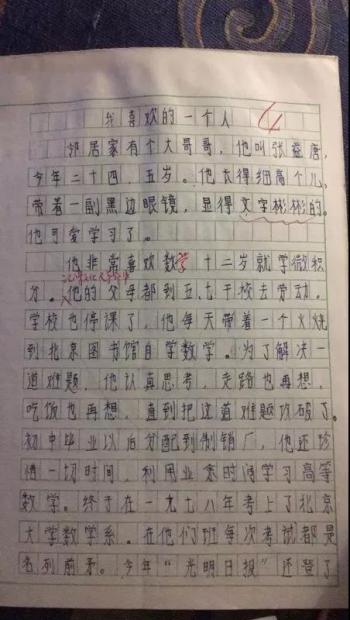 我喜欢的一个人
邻居家有个大哥哥,他叫张益唐,
今年二十四,五岁。他长得细高个儿,
带着一副黑边眼镜,显得文字彬彬的。
他可爱学习了。
他非常喜欢数学 十二岁就学微积
分。他的父母都到五七干校去劳动。
学校也停课了,他每天带着一个火烧
到北京图书馆自学数学。为了解决一
道难题,他认真思考,走路也再想,
吃饭也再想,直到把这道难题攻破了。
初中毕业以后分配到制销厂,他还珍
惜一切时间,利用业余时间学习高等
数学。终于在一九七八年考上了北京
大学数学系。在他们班每次考试都是
名列前矛。今年“光明日报”还登了